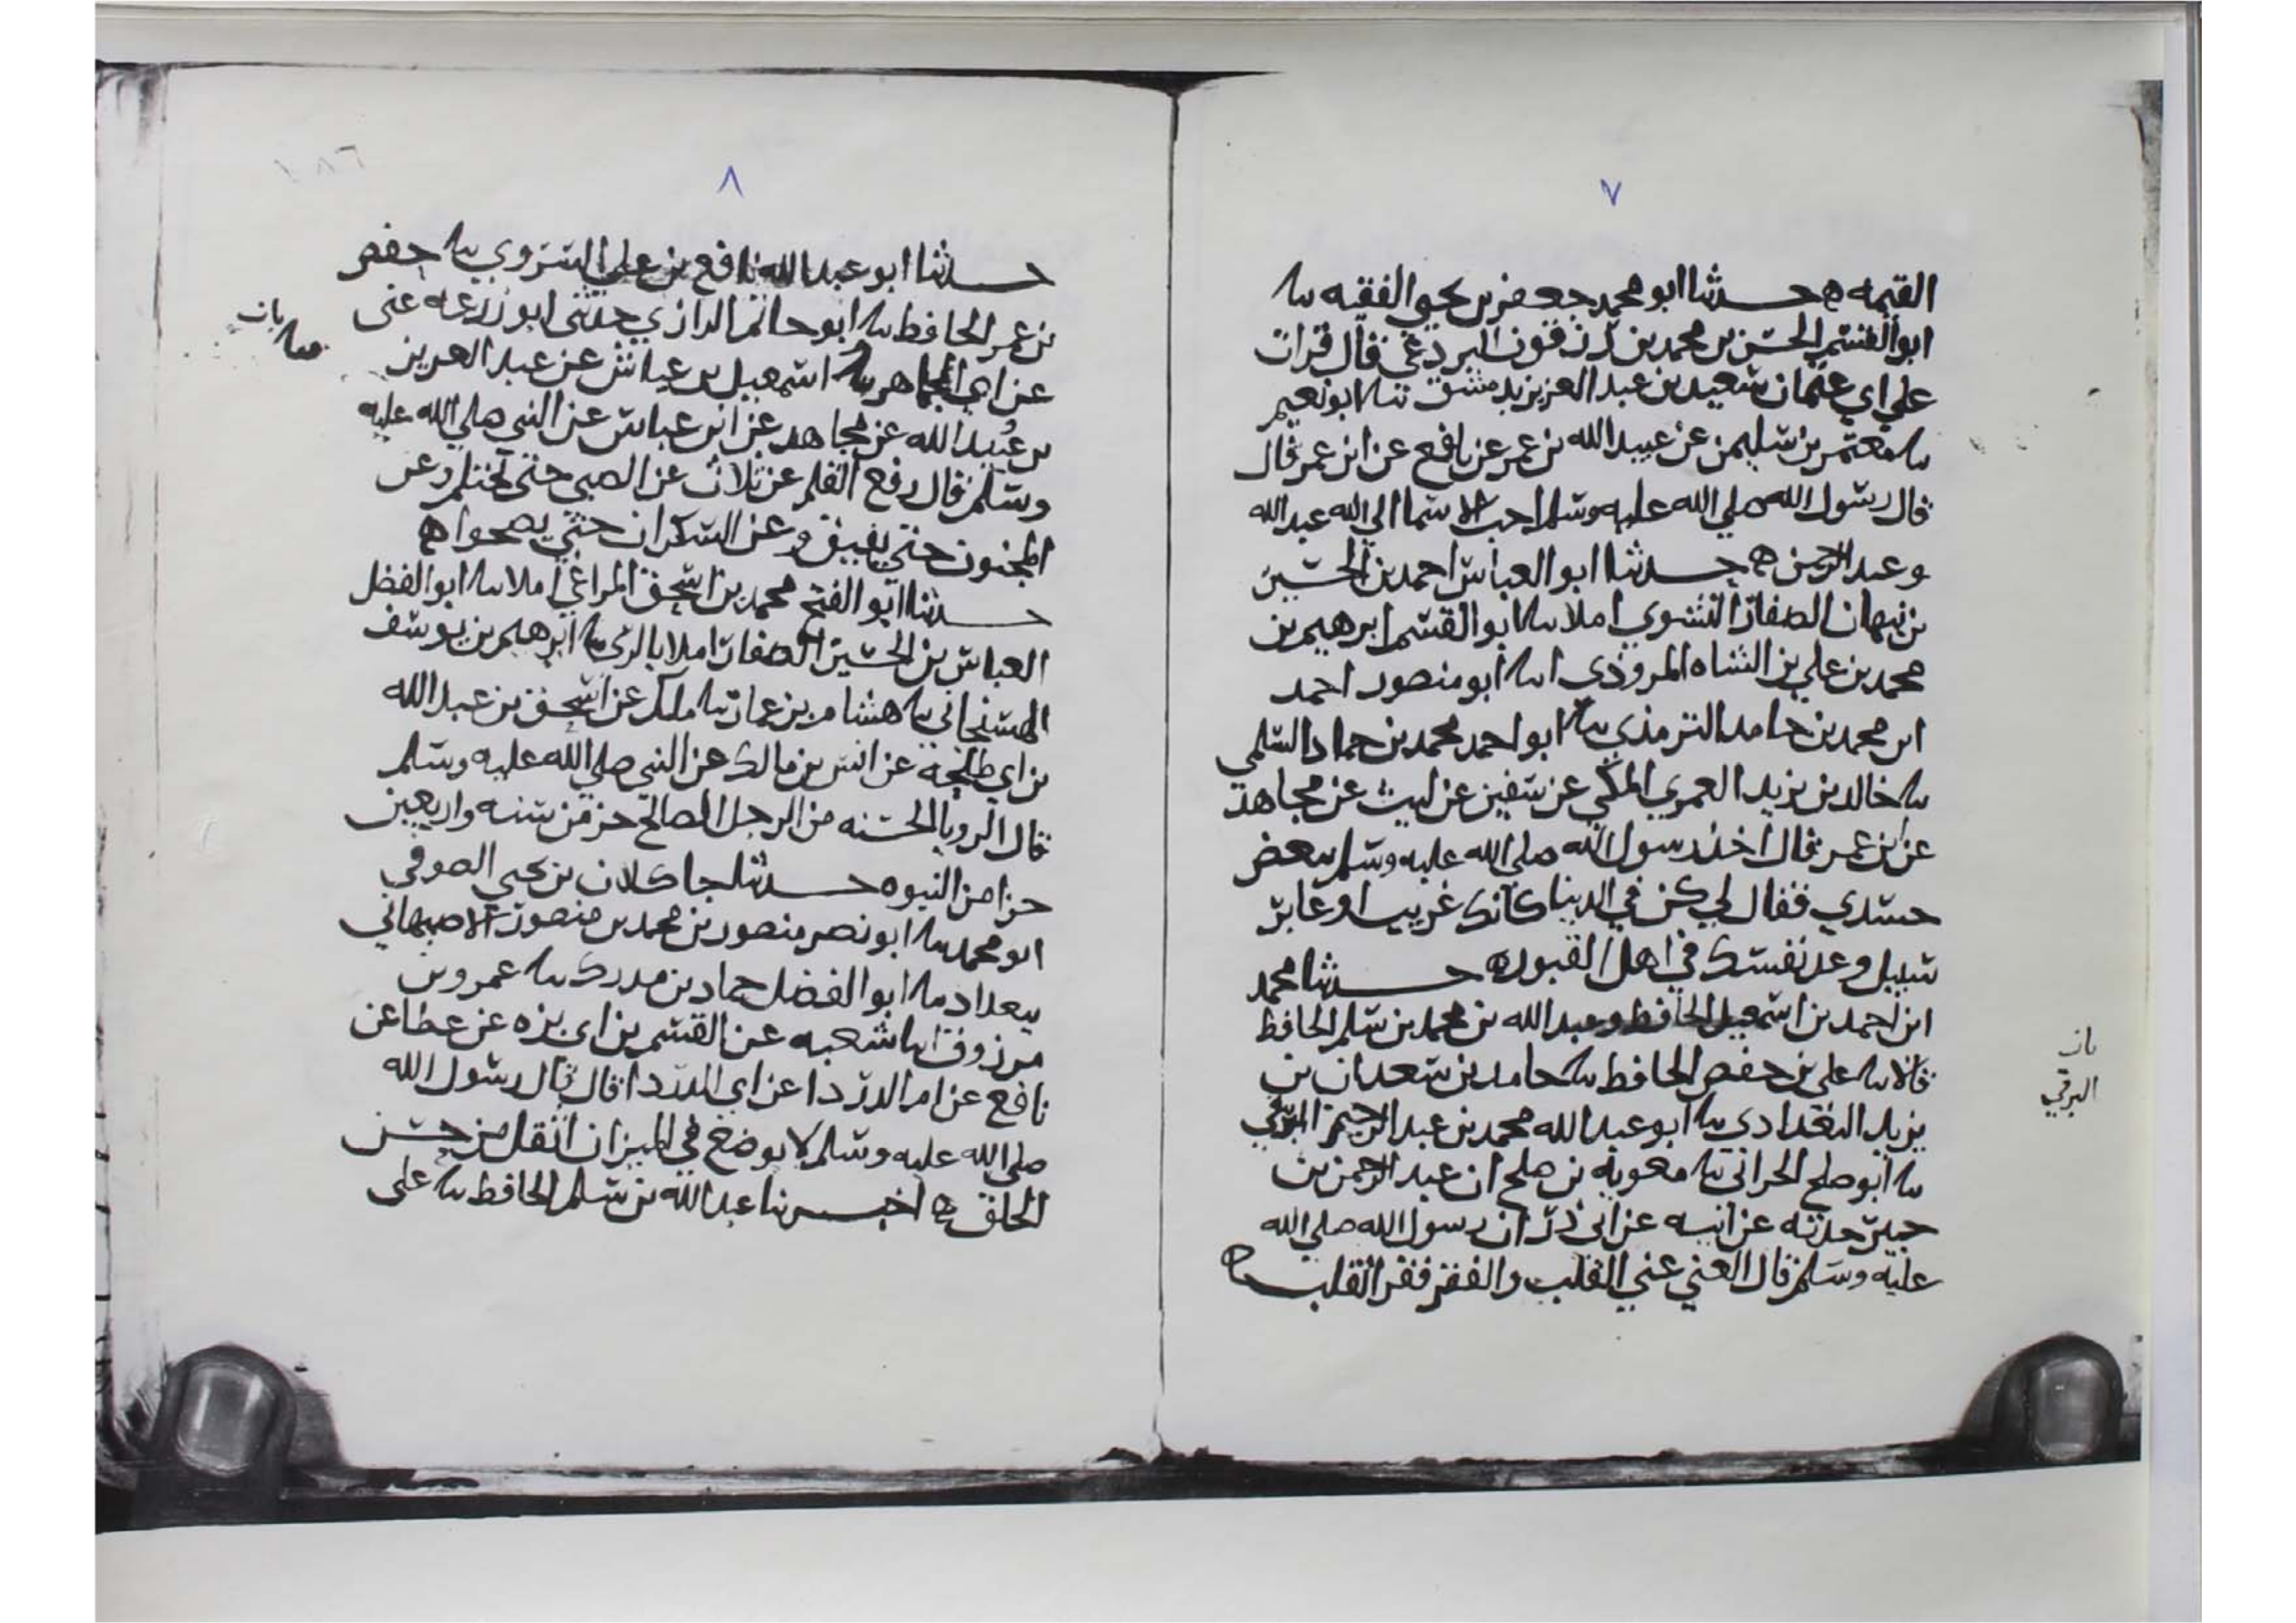 ٧
القيمه ه حدثنا ابو محمد جعفر بن يحيى الفقيه نا
ابو القسم الحسن بن محمد بن قال قرات
على ابي عثمان سعيد بن عبد العزيز بدمشق نا ابو نعيم
نا معتمر بن سليمن عن عبيد الله بن عمر عن نافع عن ابن عمر قال
قال رسول الله صلى الله عليه وسلم احب الاسما الى الله عبد الله
وعبد الرحمن ه حدثنا ابو العباس احمد بن الحسين
بن نبهان الصفار النشوي املا نا ابو القسم ابرهيم بن
محمد بن علي بن الشاه المروذي نا ابو منصور احمد
ابن محمد بن حامد الترمذي نا ابو احمد محمد بن حماد السلمي
نا خالد بن يزيد العمري المكي عن سفين عن ليث عن مجاهد
عن ابن عمر قال اخذ رسول الله صلى الله عليه وسلم ببعض
جسدي فقال لي كن في الدنيا كانك غريب او عابر
سبيل وعد نفسك في اهل القبور ه حدثنا محمد
ابن احمد بن اسمعيل الحافظ وعبد الله بن محمد بن سلم الحافظ
قالا نا علي بن حفص الحافظ نا حامد بن سعدان بن
يزيد البغدادي نا ابو عبد الله محمد بن عبد الرحيم البرقي
نا ابو صلح الحراني نا معويه بن صلح ان عبد الرحمن بن
جبير حدثه عن ابيه عن ابي ذر ان رسول الله صلى الله
عليه وسلم قال الغني غني القلب والفقر فقر القلب ه
البرقي
٨
حدثنا ابو عبد الله نافع بن علي نا حفص
بن عمر الحافظ نا ابو حاتم الرازي حدثني ابو زرعه عني
عن ابي الجماهر نا اسمعيل بن عياش عن عبد العزيز
بن عبيد الله عن مجاهد عن ابن عباس عن النبي صلى الله عليه
وسلم قال رفع القلم عن ثلاث عن الصبي حتى يحتلم وعن
المجنون حتى يفيق وعن السكران حتى يصحوا ه
حدثنا ابو الفتح محمد بن اسحق المراغي املا نا ابو الفضل
العباس بن الحسين الصفار املا بالري نا ابرهيم بن يوسف
الهسنجاني نا هشام بن عمار نا ملك عن اسحق بن عبد الله
بن ابي طلحة عن انس بن مالك عن النبي صلى الله عليه وسلم
قال الرويا الحسنه من الرجل الصالح جز من سته واربعين
جزا من النبوه حدثنا جاكلان بن يحيى الصوفي
ابو محمد نا ابو نصر منصور بن محمد بن منصور الاصبهاني
ببغداد نا ابو الفضل حماد بن مدرك نا عمرو بن
مرزوق انا شعبه عن القسم بن ابي بزه عن عطا عن
نافع عن ام الدردا عن ابي الدردا قال قال رسول الله
صلى الله عليه وسلم لا يوضع في الميزان اثقل من حسن
الخلق ه اخبرنا عبد الله بن سلم الحافظ نا علي